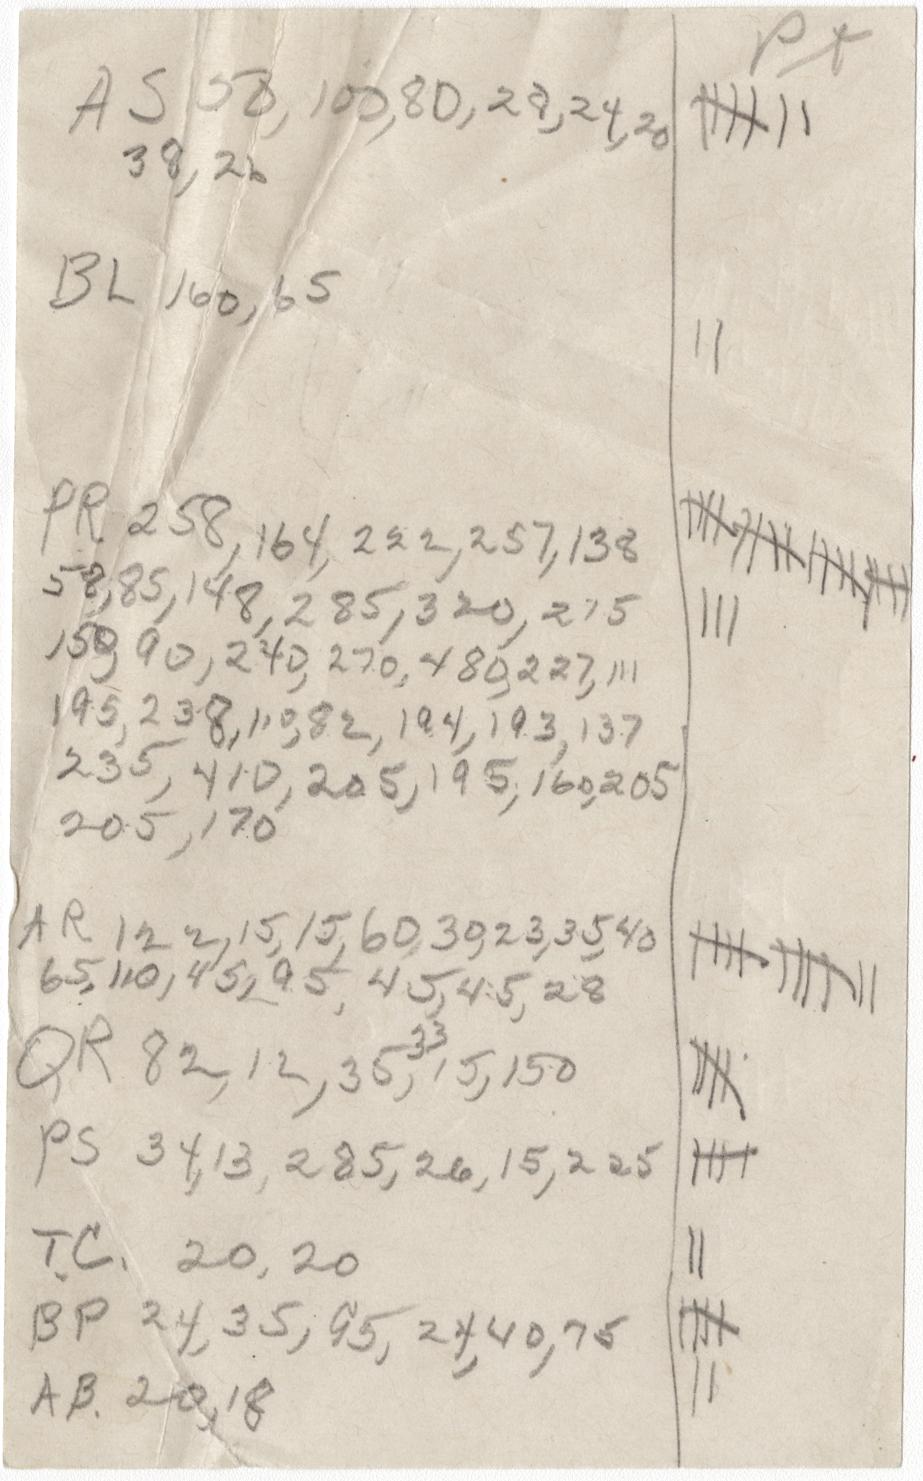 Pt
AS 58, 100, 80, 29, 24, 20
38, 26
BL 160, 65
PR 258, 164, 222, 257, 138
58, 85, 148, 285, 320, 275
150, 90, 240, 270, 480, 227, 111
195, 238, 110, 82, 194, 193, 137
235, 410, 205, 195, 160, 205
205, 170
AR 122, 15, 15, 60, 30, 23, 35, 40
65, 110, 45, 95, 45, 45, 28
QR 82, 12, 35, 33, 15, 150
PS 34, 13, 285, 26, 15, 225
T.C. 20, 20
BP 24, 35, 95, 24, 40, 75
AB. 20, 18